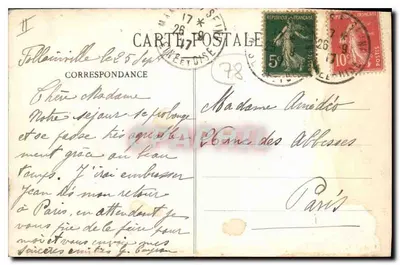 II
17 *
26-9
17
SEINE ET OISE
CARTE POSTALE
REPUBLIQUE FRANÇAISE
5c
10c
POSTES
26-9
17
78
Follainville le 25 Sept
CORRESPONDANCE
Chère Madame
Notre séjour se prolonge
et se passe très agréable
ment grâce au beau
temps. J'irai embrasser
Jean dès mon retour
à Paris, en attendant je
vous prie de le faire pour
moi et vous envoie mes
sincères amitiés
Madame Amidéo
rue des Abbesses
Paris